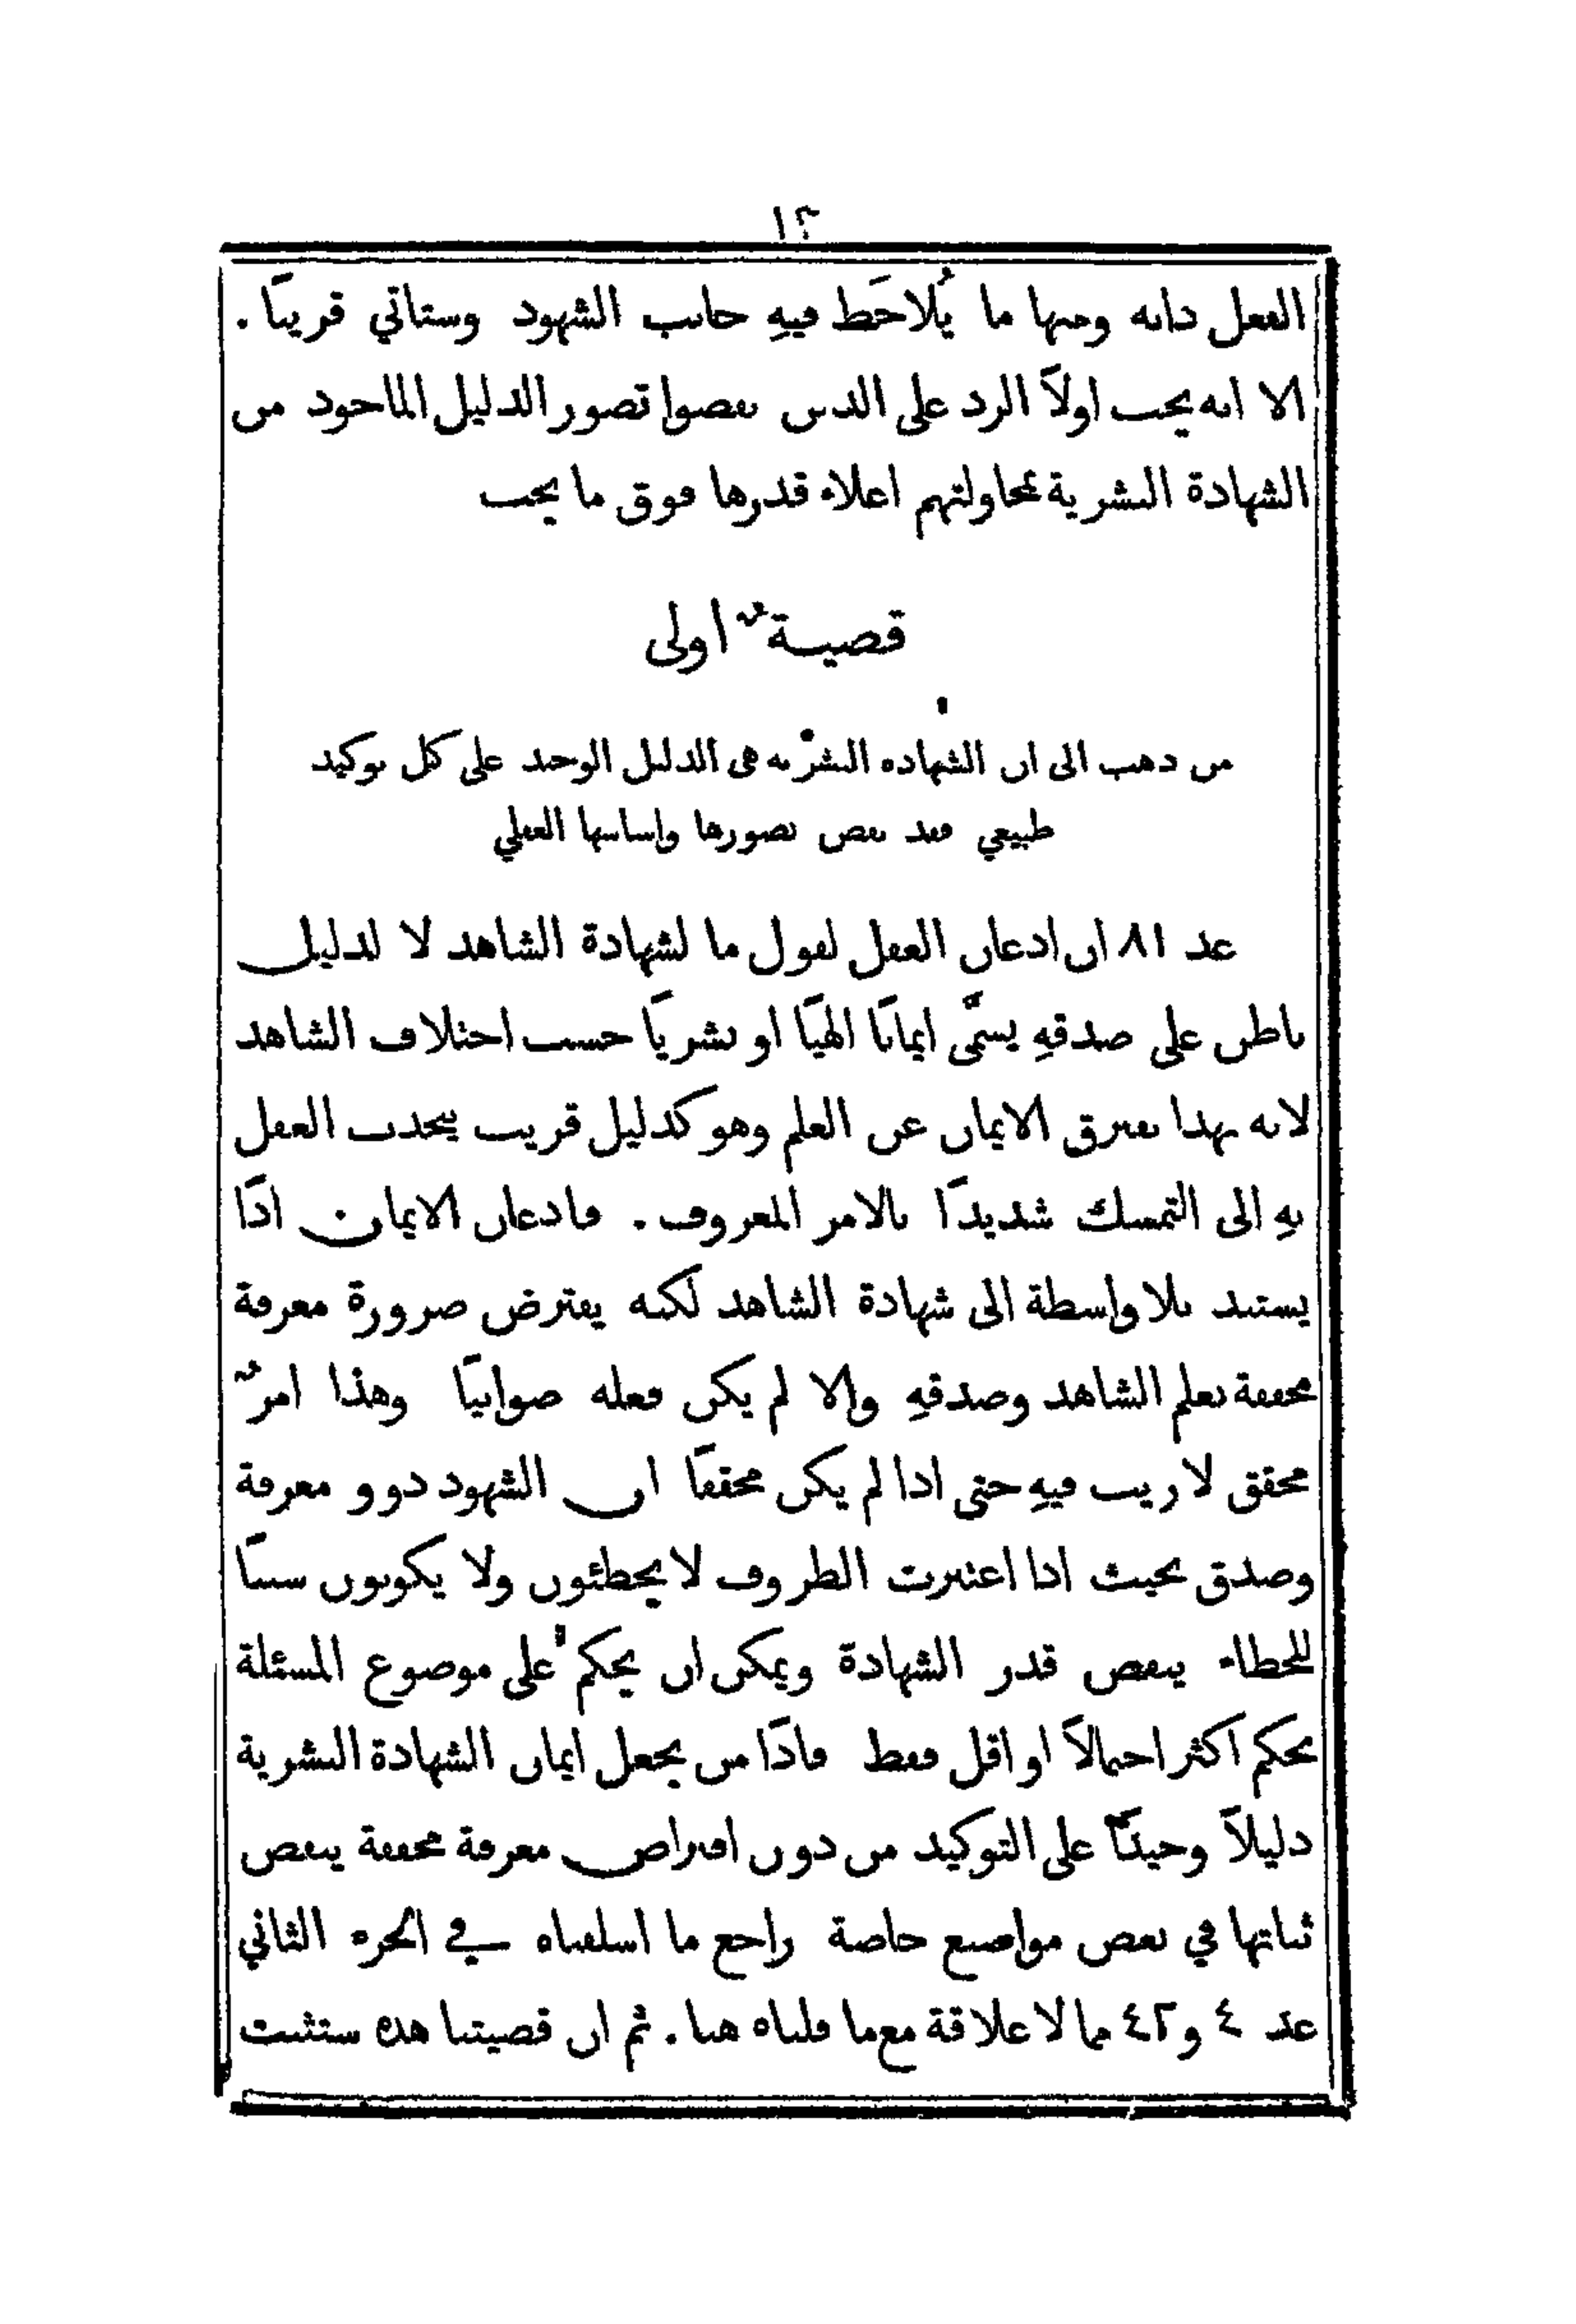 ١٢
الفعل ذاته ومنها ما يُلاحَظ فيهِ جانب الشهود وستاتي قريبًا .
الا انه يجب اولًا الرد على الذين نقصوا تصور الدليل الماخوذ من
الشهادة البشرية بمحاولتهم اعلاء قدرها فوق ما يجب
قضيةٌ اولى
من ذهب الى ان الشهاده البشريه هي الدليل الوحيد على كل توكيد
طبيعي فقد نقض تصورها واساسها العقلي
عد ٨١ ان اذعان العقل لقول ما لشهادة الشاهد لا لدليل
باطن على صدقهِ يسمَّى ايمانًا الهيًا او بشريًا حسب اختلاف الشاهد
لانه بهذا يفترق الايمان عن العلم وهو كدليل قريب ينجذب العقل
بهِ الى التمسك شديدًا بالامر المعروف . فاذعان الايمان اذًا
يستند بلا واسطة الى شهادة الشاهد لكنه يفترض ضرورة معرفة
محققة بعلم الشاهد وصدقهِ والا لم يكن فعله صوابيًا وهذا امرٌ
محقق لا ريب فيهِ حتى اذا لم يكن محققًا ان الشهود ذوو معرفة
وصدق بحيث اذا اعتبرت الظروف لا يخطئون ولا يكونون سببًا
للخطاء ينقص قدر الشهادة ويمكن ان يحكم على موضوع المسئلة
بحكم اكثر احتمالًا او اقل فقط فاذًا من يجعل ايمان الشهادة البشرية
دليلًا وحيدًا على التوكيد من دون افتراض معرفة محققة ينقض
ثباتها في بعض مواضيع خاصة راجع ما اسلفناه في الجزء الثاني
عد ٤ و٤٢ مما لا علاقة مع ما قلناه هنا . ثم ان قضيتنا هذه ستثبت